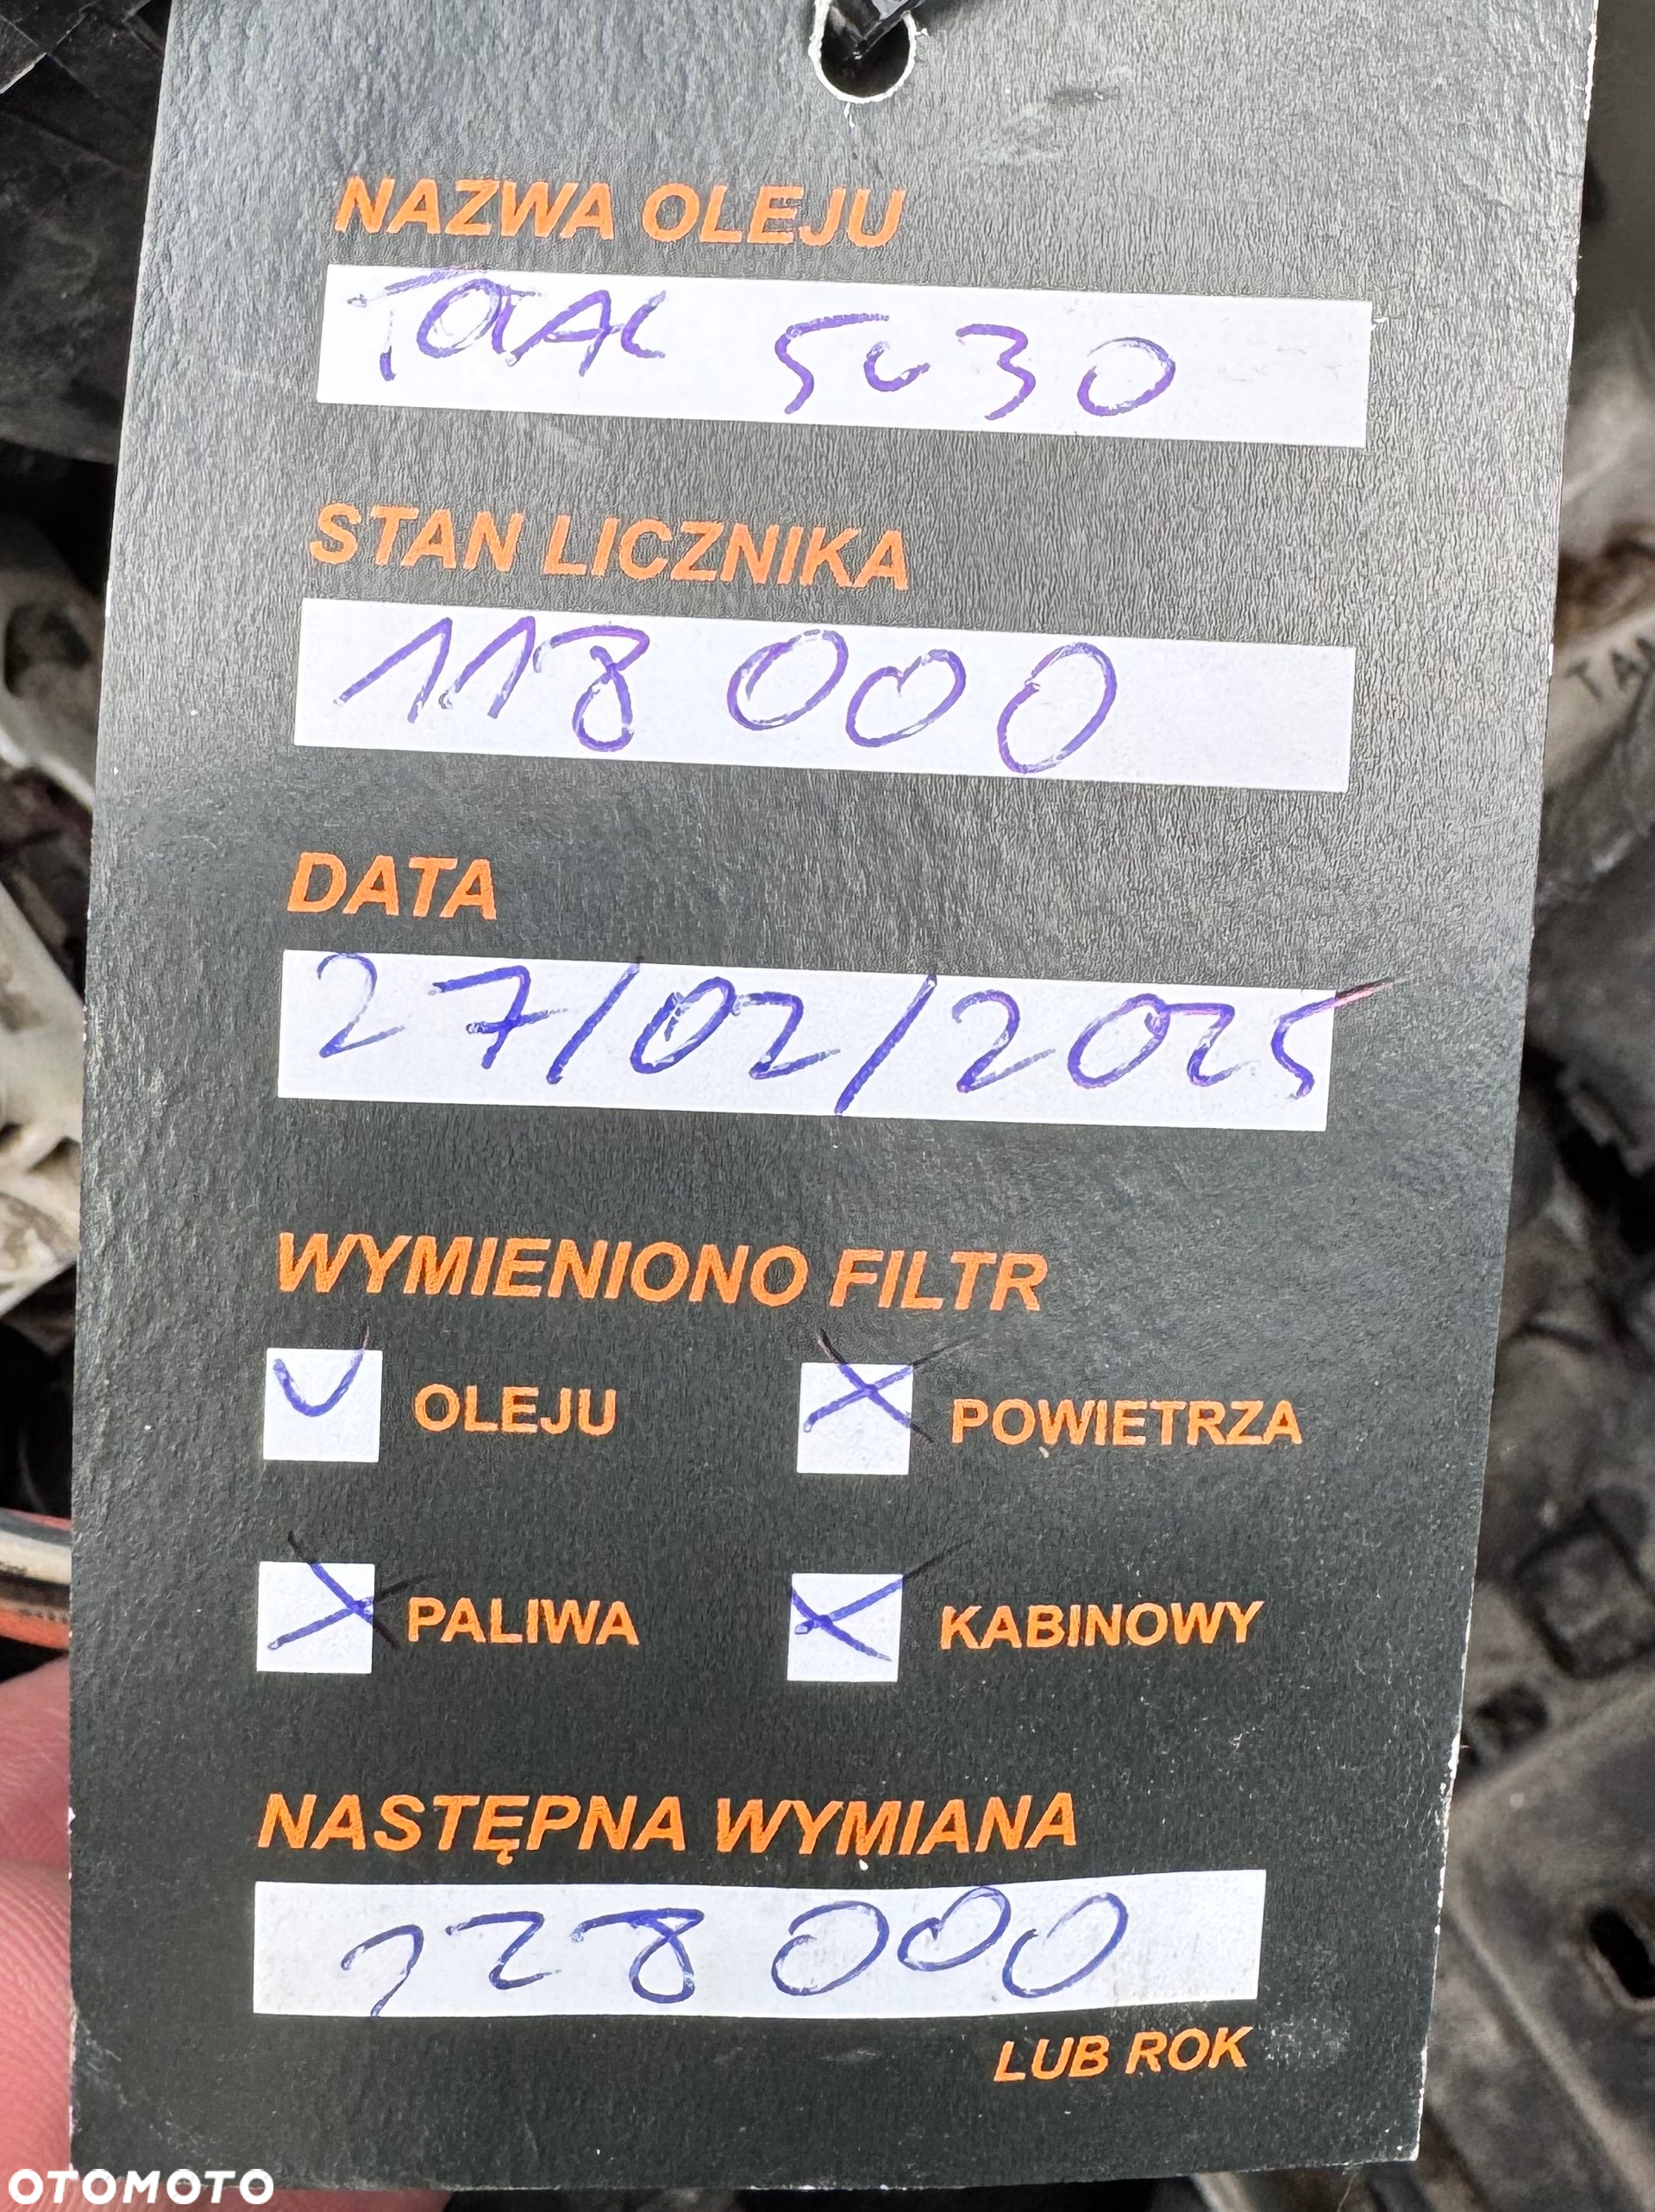 NAZWA OLEJU
TOTAL 5W30
STAN LICZNIKA
118 000
DATA
27/02/2025
WYMIENIONO FILTR
OLEJU POWIETRZA
PALIWA KABINOWY
NASTĘPNA WYMIANA
128 000
LUB ROK
OTOMOTO